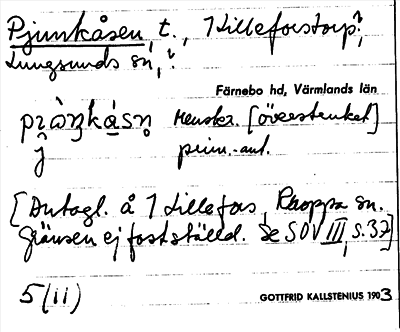 Pjunkåsen, t., 1 Lilleforstorp?,
Lungsunds sn,?
Färnebo hd, Värmlands län
Henskr. [överstruket]
prim.-ant.
[Antagl. å 1 Lillefors, Kroppa sn.
Gränsen ej fastställd. Se SOV III, s. 32]
5 (11)
GOTTFRID KALLSTENIUS 1903